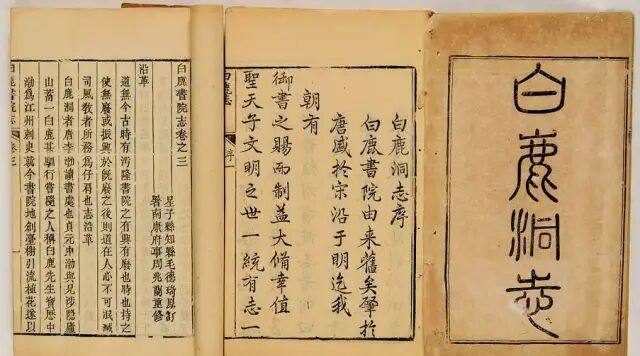 白鹿洞志
白鹿洞志序
白鹿書院由来舊矣肇於
唐盛於宋沿于明迄我
朝有
御書之賜而制益大備幸值
聖天子文明之世一統有志一
白鹿志 序一
白鹿書院志卷之三
星子縣知縣毛德琦原訂
署南康府事周兆蘭重修
沿革
道無今古時有汚隆書院之有興有廢也時也持之
使無廢或振興於旣廢之後則道在人心不可泯滅
司風教者所務爲仔肩也志沿革
白鹿洞者唐李渤讀書處也貞元中渤與兄涉隱廬
山蓄一白鹿甚馴行嘗隨之人稱白鹿先生寶歷中
渤爲江州刺史就今書院地創臺榭引流植花遂以
白鹿書院志 卷三 一